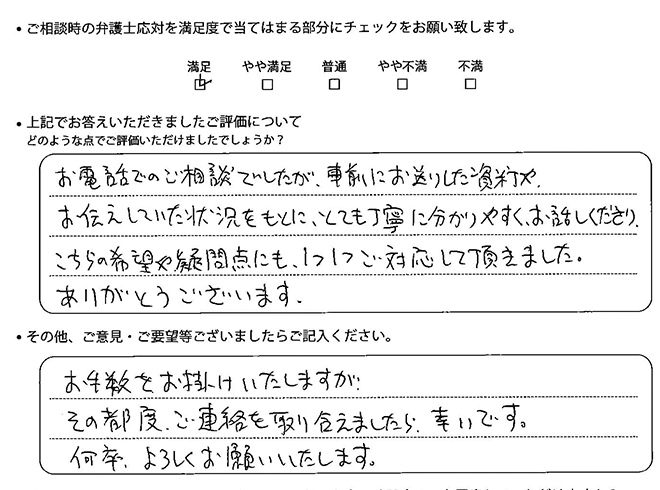 ・ご相談時の弁護士応対を満足度で当てはまる部分にチェックをお願い致します。
満足 やや満足 普通 やや不満 不満
・上記でお答えいただきましたご評価について
どのような点でご評価いただけましたでしょうか？
お電話でのご相談でしたが、事前にお送りした資料や、
お伝えしていた状況をもとに、とても丁寧に分かりやすく、お話しくださり、
こちらの希望や疑問点にも、1つ1つご対応して頂きました。
ありがとうございます。
・その他、ご意見・ご要望等ございましたらご記入ください。
お手数をお掛けいたしますが、
その都度、ご連絡を取り合えましたら、幸いです。
何卒、よろしくお願いいたします。